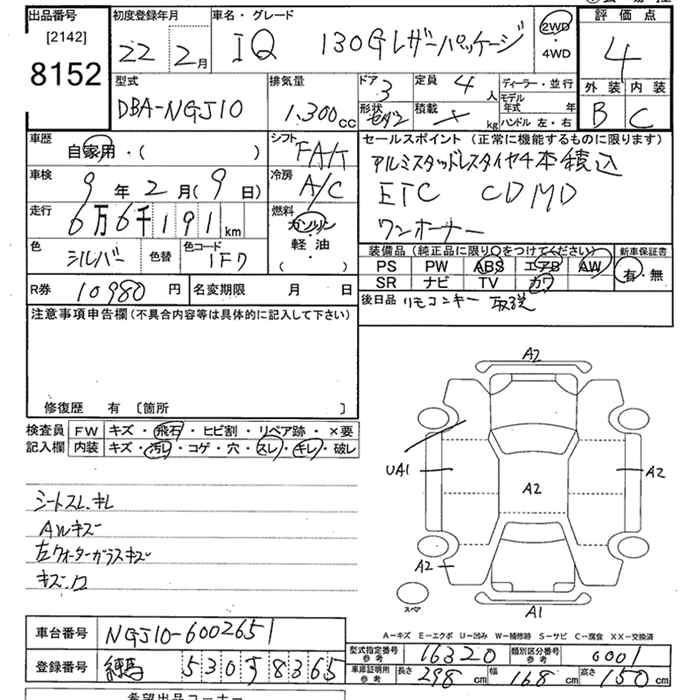 出品番号 [2142] 8152
初度登録年月 22年 2月
車名・グレード IQ 130Gレザーパッケージ
2WD・4WD
評価点 4
外装 B 内装 C
型式 DBA-NGJ10
排気量 1.300cc
ドア 3 定員 4人
形状 セダン 積載 × kg
ディーラー・並行
モデル年式 年
ハンドル 左・右
車歴 自家用・( )
シフト FAT
車検 9年2月(9日)
冷房 A/C
走行 6万6千191km
燃料 ガソリン・軽油・( )
色 シルバー 色替 色コード 1F7
セールスポイント (正常に機能するものに限ります)
アルミスタッドレスタイヤ4本積込
ETC CD MD
ワンオーナー
装備品 (純正品に限り○をつけてください)
PS PW ABS エアB AW
SR ナビ TV カワ
新車保証書 有・無
R券 10980円 名変期限 月 日
後日品 リモコンキー 取説
注意事項申告欄(不具合内容等は具体的に記入して下さい)
修復歴 有 〔箇所 〕
検査員記入欄
FW キズ・飛石・ヒビ割・リペア跡・×要
内装 キズ・汚レ・コゲ・穴・スレ・キレ・破レ
シートスレ.キレ
AWキズ
左クォーターガラスキズ
A2
UA1
A2
A2
A2
A1
スペア
A-キズ E-エクボ U-凹み W-補修跡 S-サビ C-腐食 XX-交換済
車台番号 NGJ10-6002651
登録番号 練馬 530 す 8365
型式指定番号 参考 16320 類別区分番号 参考 0001
車庫証明用 参考 長さ 298cm 幅 168cm 高さ 150cm
希望出品コーナー